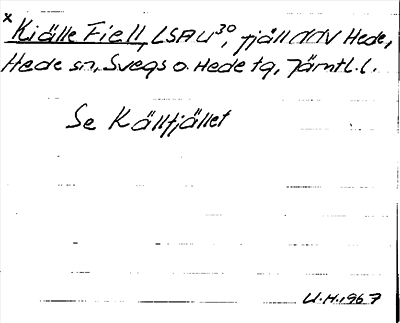 x Kiälle Fiell, LSAU³⁰, fjäll NNV Hede,
Hede sn, Svegs o. Hede tg, Jämtl. l.
Se Källfjället
U.H. 1967